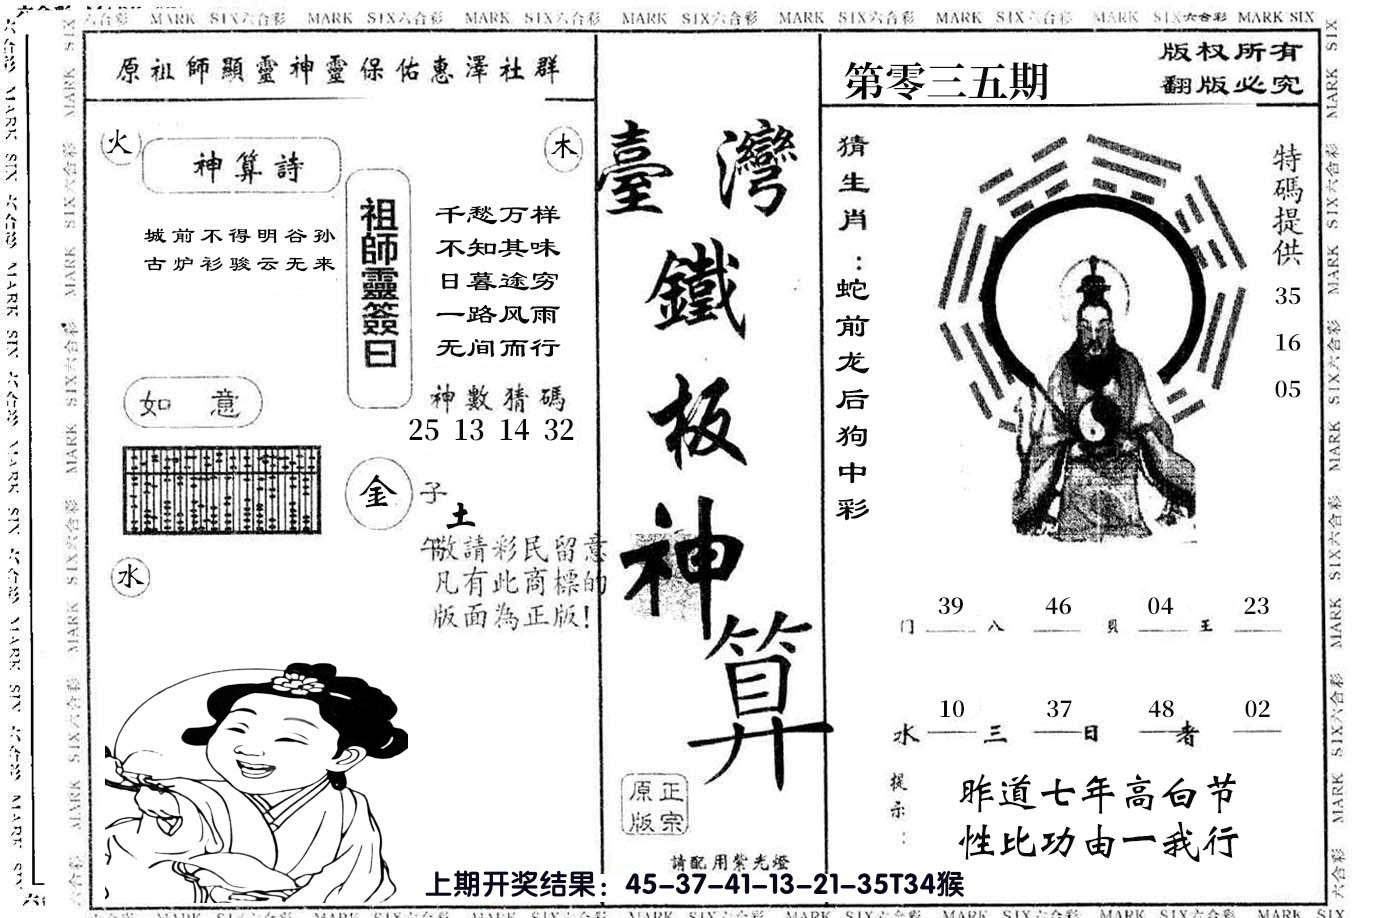 MARK SIX六合彩 MARK SIX六合彩 MARK SIX六合彩 MARK SIX六合彩 MARK SIX六合彩 MARK SIX六合彩 MARK SIX六合彩 MARK SIX
原祖師顯靈神靈保佑惠澤社群
火
木
神算詩
城前不得明谷孙
古炉衫骏云无来
祖師靈簽曰
千愁万样
不知其味
日暮途穷
一路风雨
无间而行
神數猜碼
25 13 14 32
如意
金
子
土
午
水
敬請彩民留意
凡有此商標的
版面為正版!
臺灣
鐵
板
神
算
正宗
原版
請配用紫光燈
第零三五期
版权所有
翻版必究
猜生肖:蛇前龙后狗中彩
特碼提供
35
16
05
39 46 04 23
门 八 貝 王
10 37 48 02
水 三 日 者
提示:
昨道七年高白节
性比功由一我行
上期开奖结果：45-37-41-13-21-35T34猴